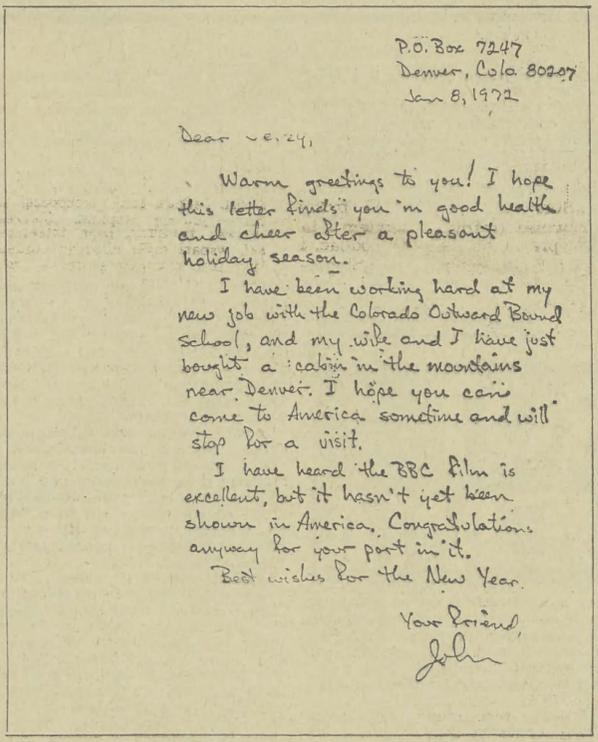 P.O. Box 7247
Denver, Colo. 80207
Jan 8, 1972
Dear
Warm greetings to you! I hope
this letter finds you in good health
and cheer after a pleasant
holiday season.
I have been working hard at my
new job with the Colorado Outward Bound
School, and my wife and I have just
bought a cabin in the mountains
near Denver. I hope you can
come to America sometime and will
stop for a visit.
I have heard the BBC film is
excellent, but it hasn't yet been
shown in America. Congratulations
anyway for your part in it.
Best wishes for the New Year.
Your friend,
John